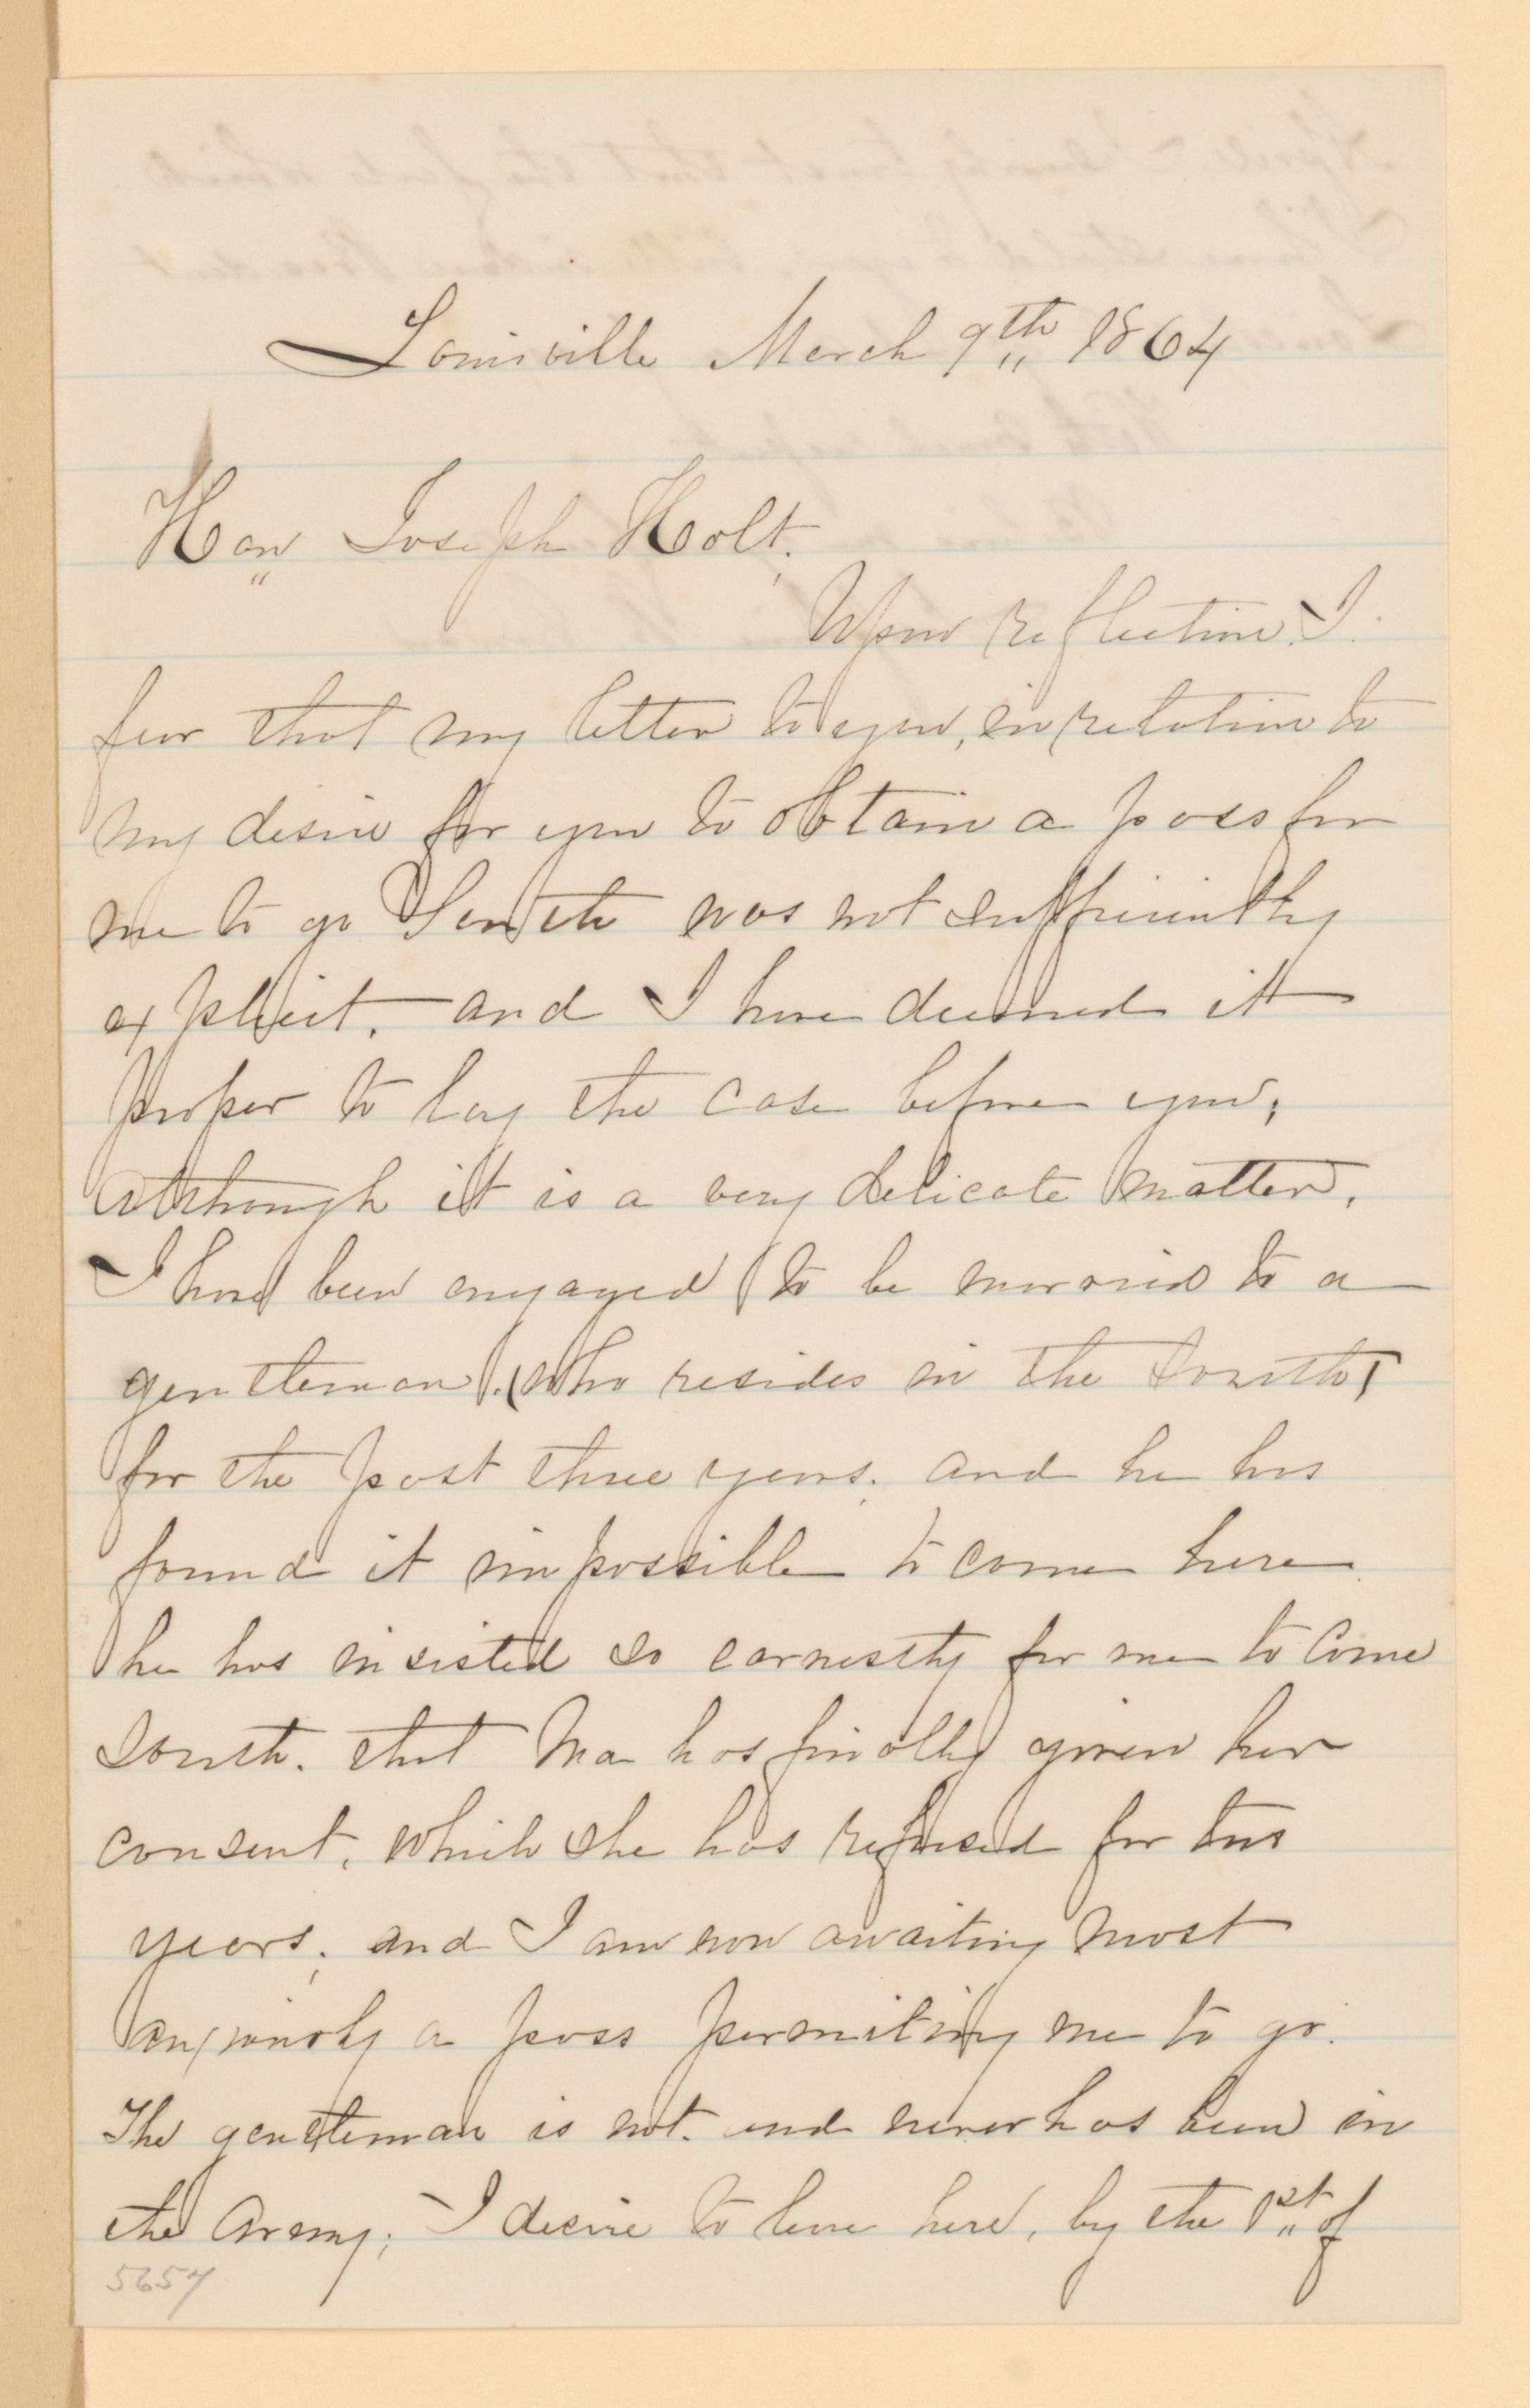 Louisville March 9th 1864
Hon Joseph Holt.
Upon reflection I
fear that my letter to you, in relation to
my desire for you to obtain a pass for
me to go South was not sufficiently
explicit, and I have deemed it
proper to lay the case before you;
although it is a very delicate matter.
I have been engaged to be married to a
gentleman, (who resides in the South)
for the past three years; and he has
found it impossible to come here
he has insisted so earnestly for me to come
South. that Ma has finally given her
consent, which she has refused for two
years; and I am now awaiting most
anxiously a pass permiting me to go.
The gentleman is not. and never has been in
the Army; I desire to leave here, by the 1st of
5654